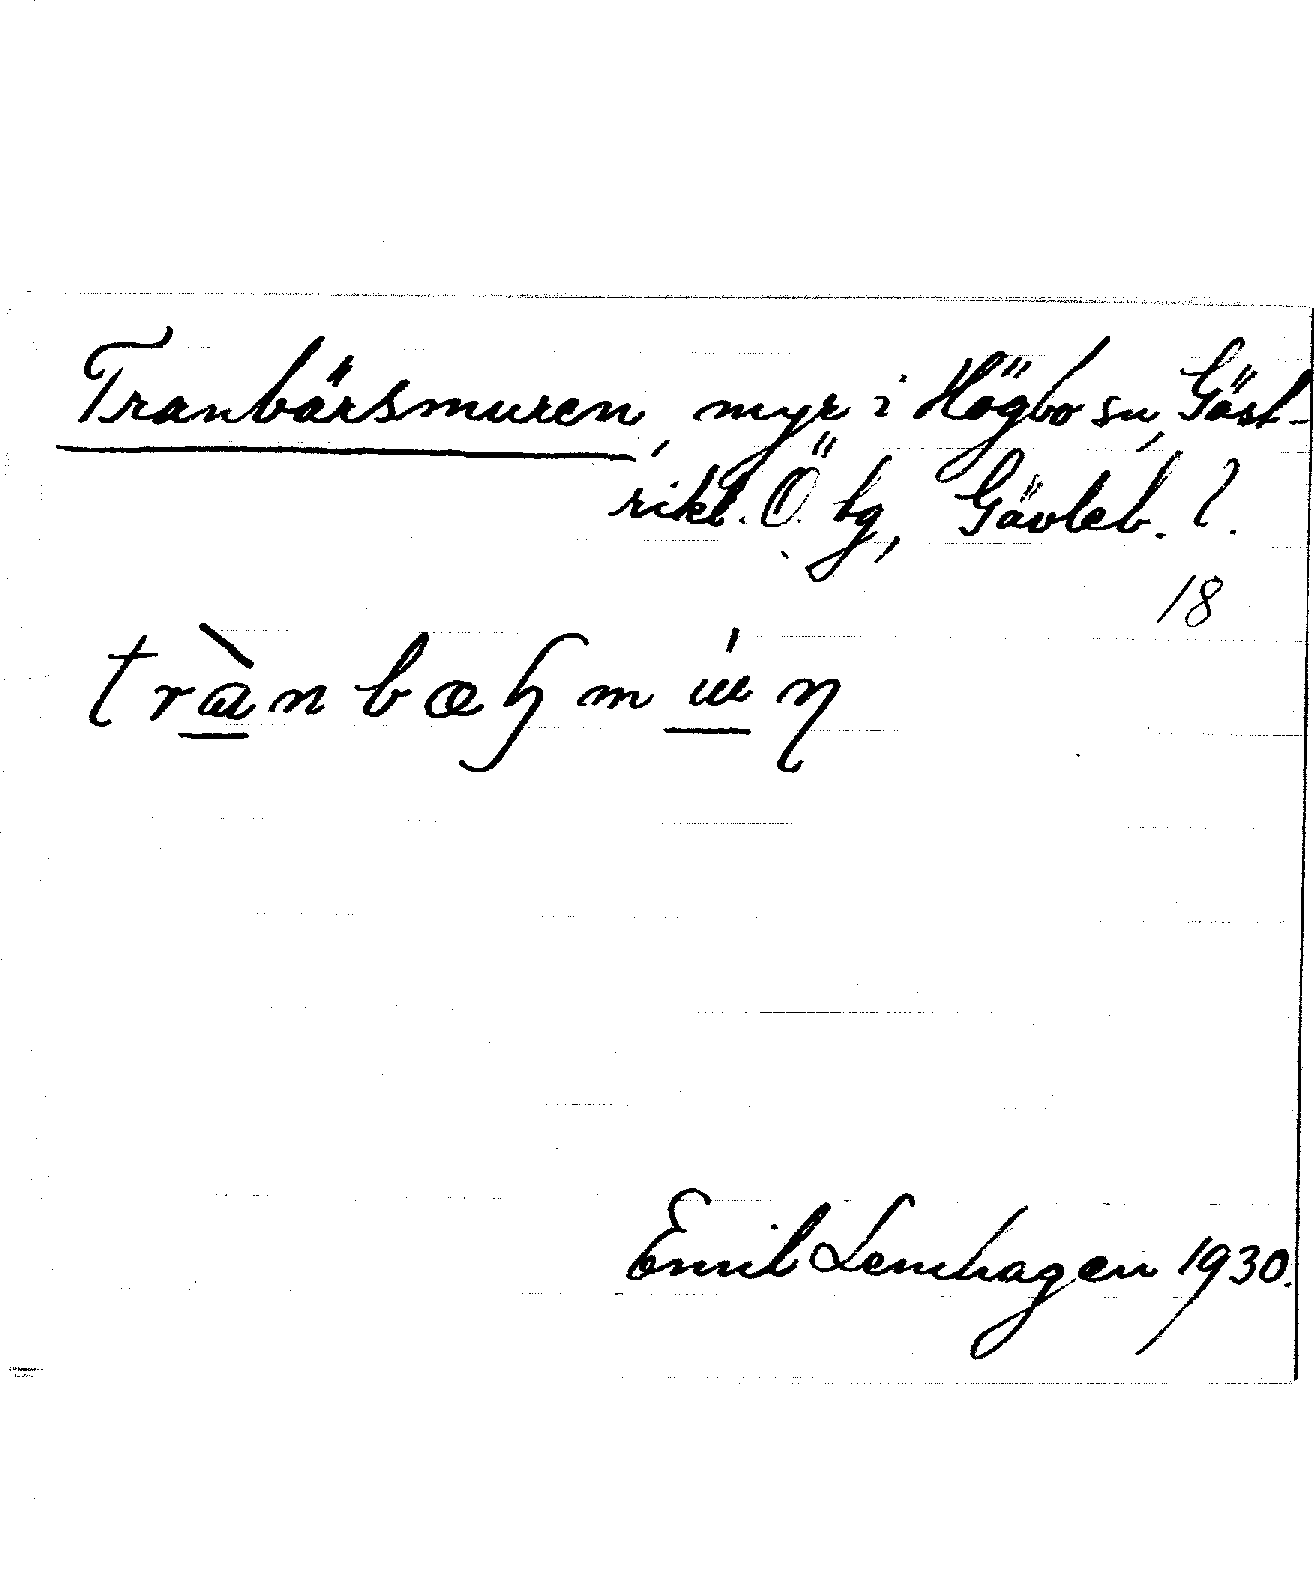 Tranbärsmuren, myr i Högbo sn, Gäst-
rikl. Ö. tg, Gävleb. l.
18
Emil Lenhagen 1930.